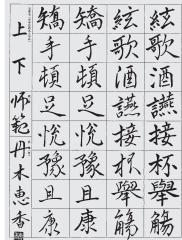 絃歌酒讌接杯舉觴
絃歌酒讌接杯舉觴
矯手頓足悅豫且康
矯手頓足悅豫且康
上下 師範 丹木恵香